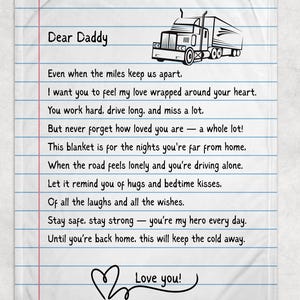 Dear Daddy
Even when the miles keep us apart,
I want you to feel my love wrapped around your heart.
You work hard, drive long, and miss a lot.
But never forget how loved you are — a whole lot!
This blanket is for the nights you're far from home.
When the road feels lonely and you're driving alone.
Let it remind you of hugs and bedtime kisses.
Of all the laughs and all the wishes.
Stay safe, stay strong — you're my hero every day.
Until you're back home, this will keep the cold away.
Love you!